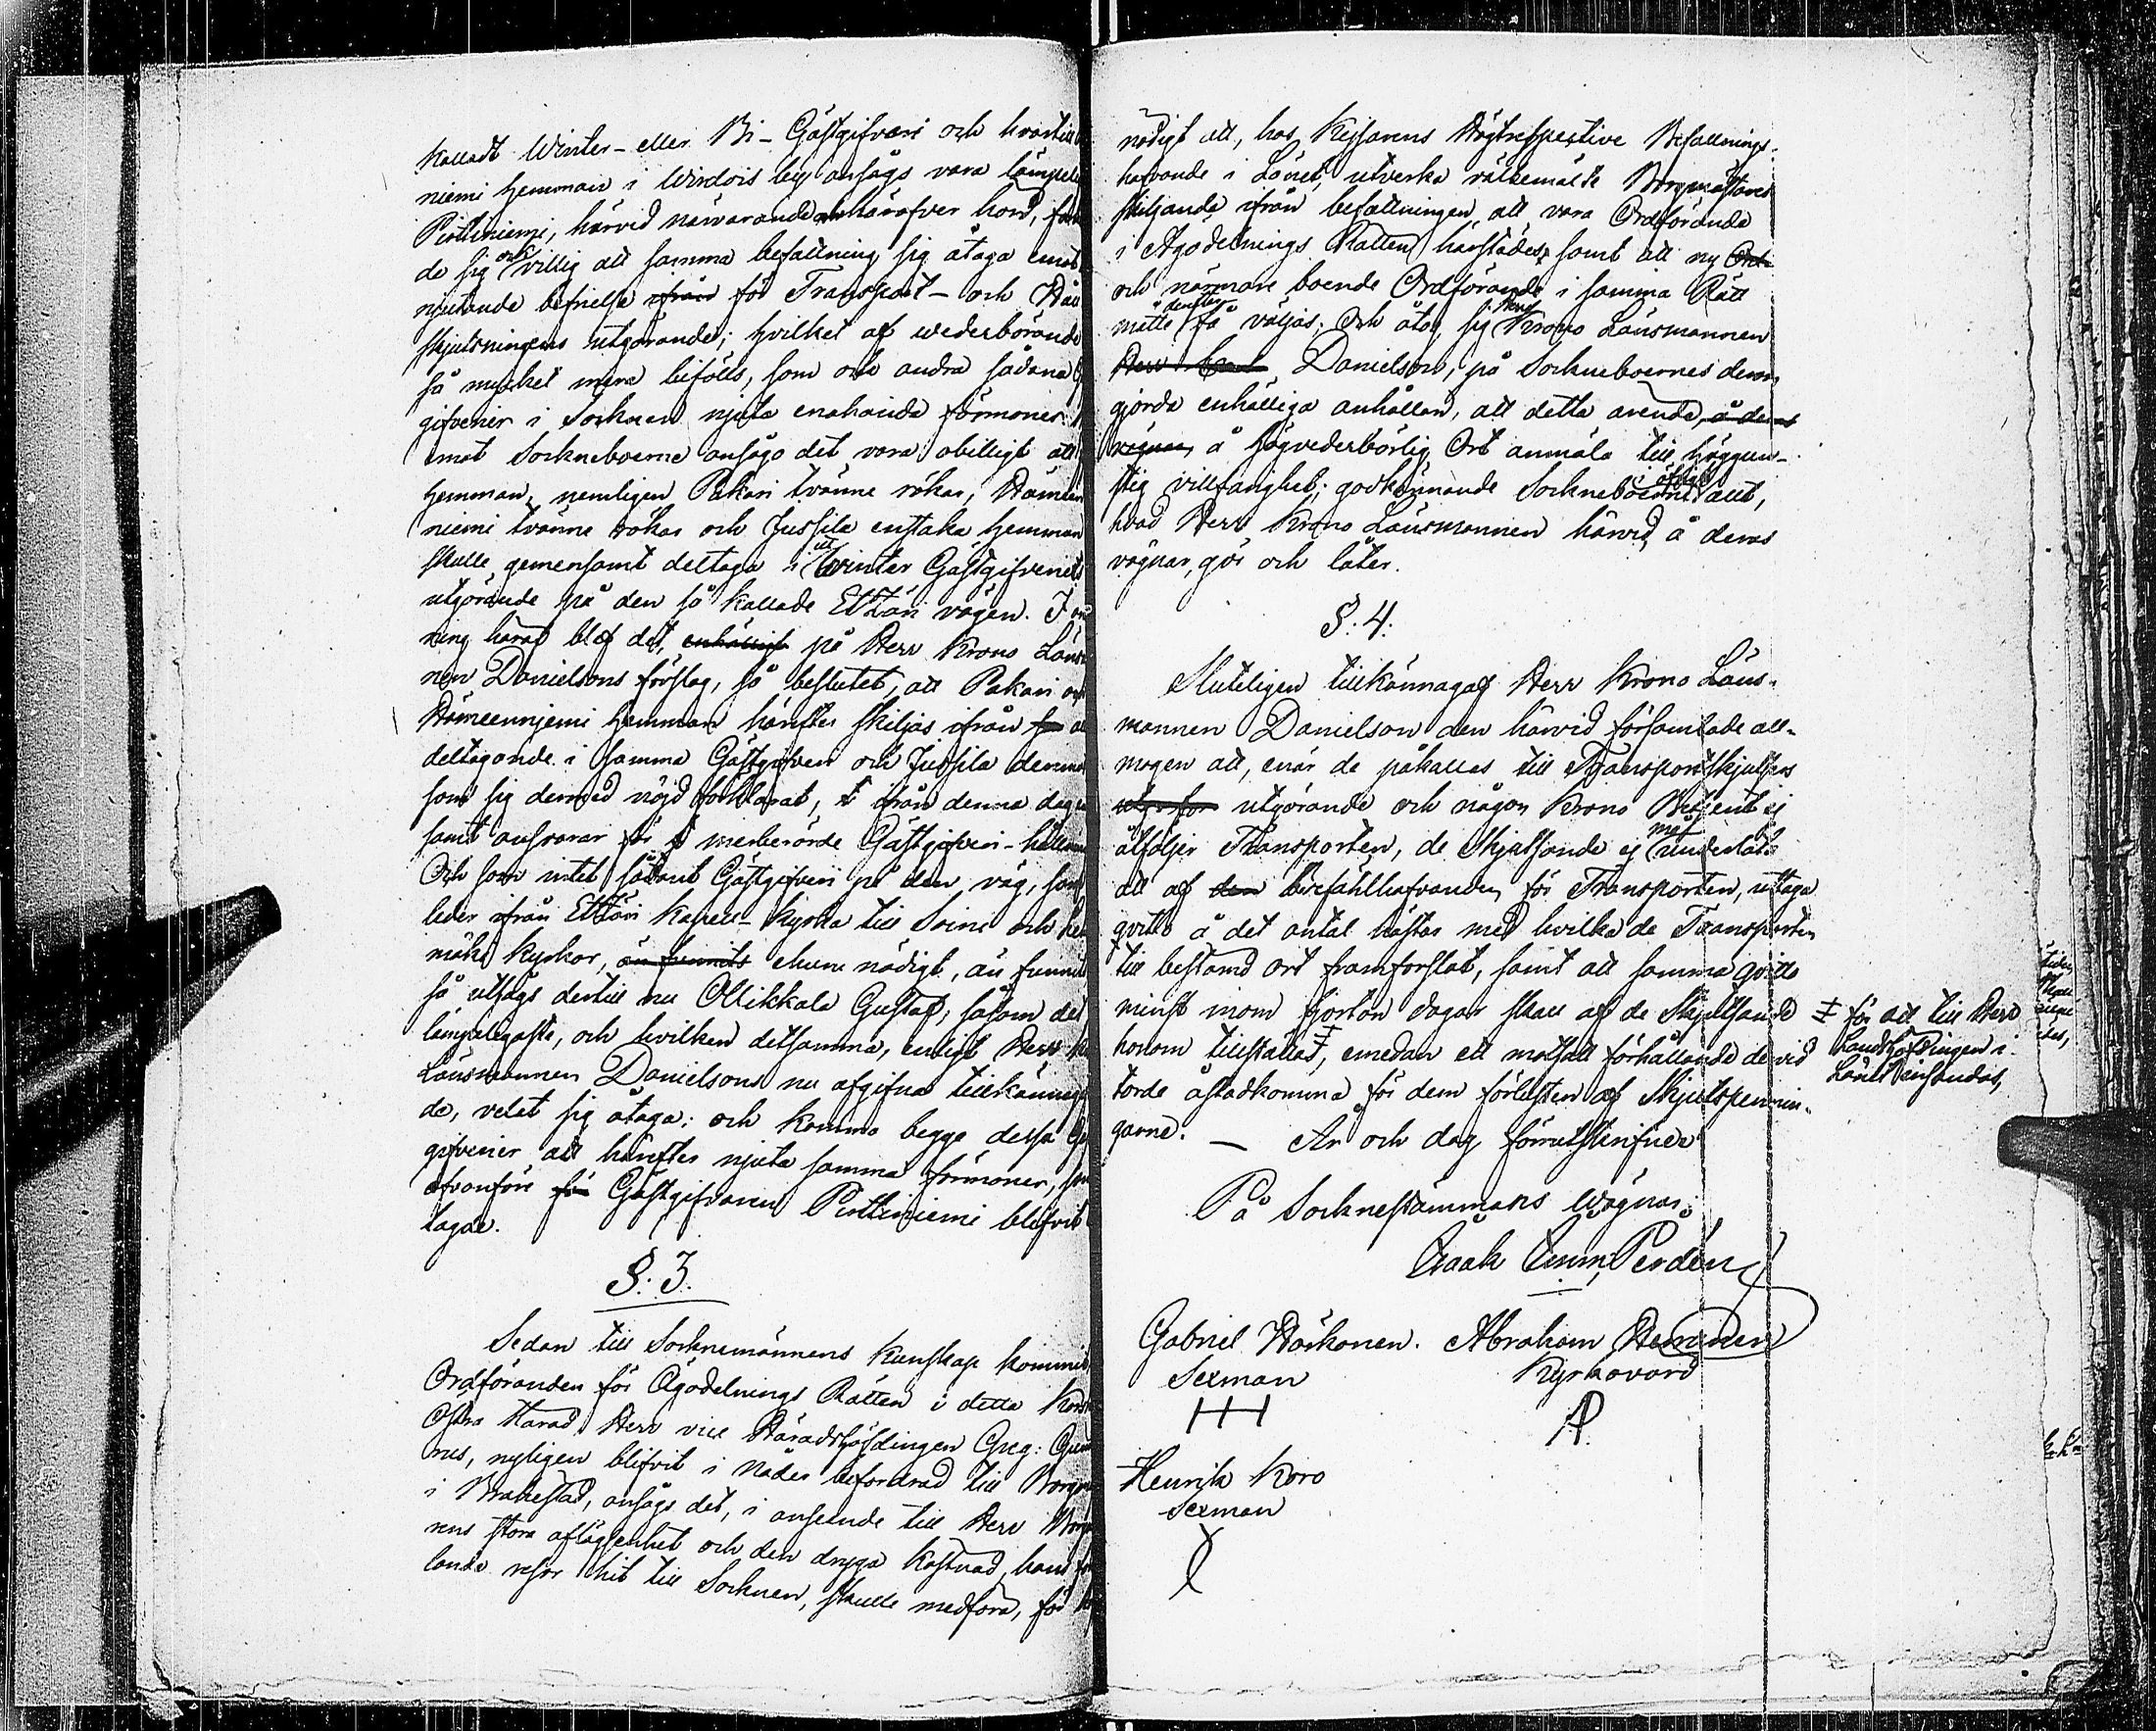 kalladt Winter- eller Bi- Gästgifveri och hvartill
niemi hemman i Wirdois by ansågs vara lämpeli
Pirttiniemi, härvid närvarande och häröfver hörd, fan
de sig ock villig att samma befattning sig åtaga emot
njutande befrielse ifrån för Transport- och Håll
skjutsningens utgörande; hvilket af wederbörande
så mycket mera bifölls, som ock andra sådana G
gifverier i Socknen njuta enahanda förmoner.
emot Sockneboerne ansågo det vara obilligt att
hemman, nemligen Pakari tvänne rökar, Hämeen
niemi tvänne rökar och Jussila enstaka hemman
skulle gemensamt deltaga i Winter Gästgifveriets
utgörande på den så kallade Etzäri vägen. I an
ning häraf blef det, enhälligt på Herr Krono Läns
nen Danielsons förslag, så beslutet, att Pakari och
Hämeenniemi hemman härefter skiljas ifrån
deltagande i samma Gästgifveri och Jussila
som sig dermed nöjd förklarat, ifrån denna dag
samt ansvarar för merberörde Gästgifveri-hållen
Och som intet sådant Gästgifveri på den väg, som
leder ifrån Etzäri Kapell-kyrka till Soini och
mäki kyrkor, än funnits ehuru nödigt, än funnits
så utsågs dertill nu Ollikkala Gustaf, såsom det
lämpeligaste, och hvilken detsamma, enligt Herr K
Länsmannen Danielsons nu afgifna tillkännag
de, velat sig åtaga: och komma begge dessa G
gifverier att härefter njuta samma förmoner, som
ofvanföre för Gästgifvaren Pirttiniemi blifvit
tagne.
§. 3.
Sedan till Socknemännens kunskap kommit
Ordföranden för Ägodelnings Rätten i detta Kors
Östra Härad Herr vice Häradshöfdingen Greg:
rus, nyligen blifvit i Nåder befordrad till Borgm
i Brahestad, ansågs det, i anseende till Herr Borg
rens stora aflägsenhet och den dryga kostnad, hans
lande resor hit till Socknen, skulle medföra, för
nödigt att, hos Kejsarens Högtrespective Befallnings-
hafvande i Länet, utverka välbemälte Borgmästares
skiljande ifrån befattningen att vara Ordförande
i Ägodelnings Rätten härstädes, samt att ny Ord
och närmare boende Ordförande i samma Rätt
måtte derefter få väljas. Och åtog sig Herr Krono Länsmannen
Herr Danielson, på Sockneboernes derom
gjorda enhälliga anhållan, att detta ärende, å deras
vägnar, å högvederbörlig Ort anmäla till höggun-
stig villfarighet; godkännande Sockneboerne i öfrigt allt,
hvad Herr Krono Länsmannen härvid, å deras
vägnar, gör och låter.
§. 4.
Sluteligen tillkännagaf Herr Krono Läns-
mannen Danielson den härvid församlade all-
mogen att, enär de påkallas till Transportskjutsars
utgörande och någon Krono Betjent ej
åtföljer Transporten, de Skjutsande ej må underlåta
att af den befählhafvanden för Transporten, uttaga
qvitto å det antal hästar med hvilka de Transporten
till bestämd ort framforslat, samt att samma qvitto
minst inom fjorton dagar skall af de Skjutsande
honom tillställas ‡, emedan ett motsatt förhållande dervid
torde åstadkomma för dem förlusten af Skjutspennin-
garne. — År och dag förutskrifne
‡ för att till Herr
Landshöfdingen i
Länet insändas,
På Sockenstämmans wägnar:
Isaak Emm, Perdén
Gabriel Härkönen. Abraham
Sexman Kyrkovärd
HH A.
Henrik Koro
Sexman